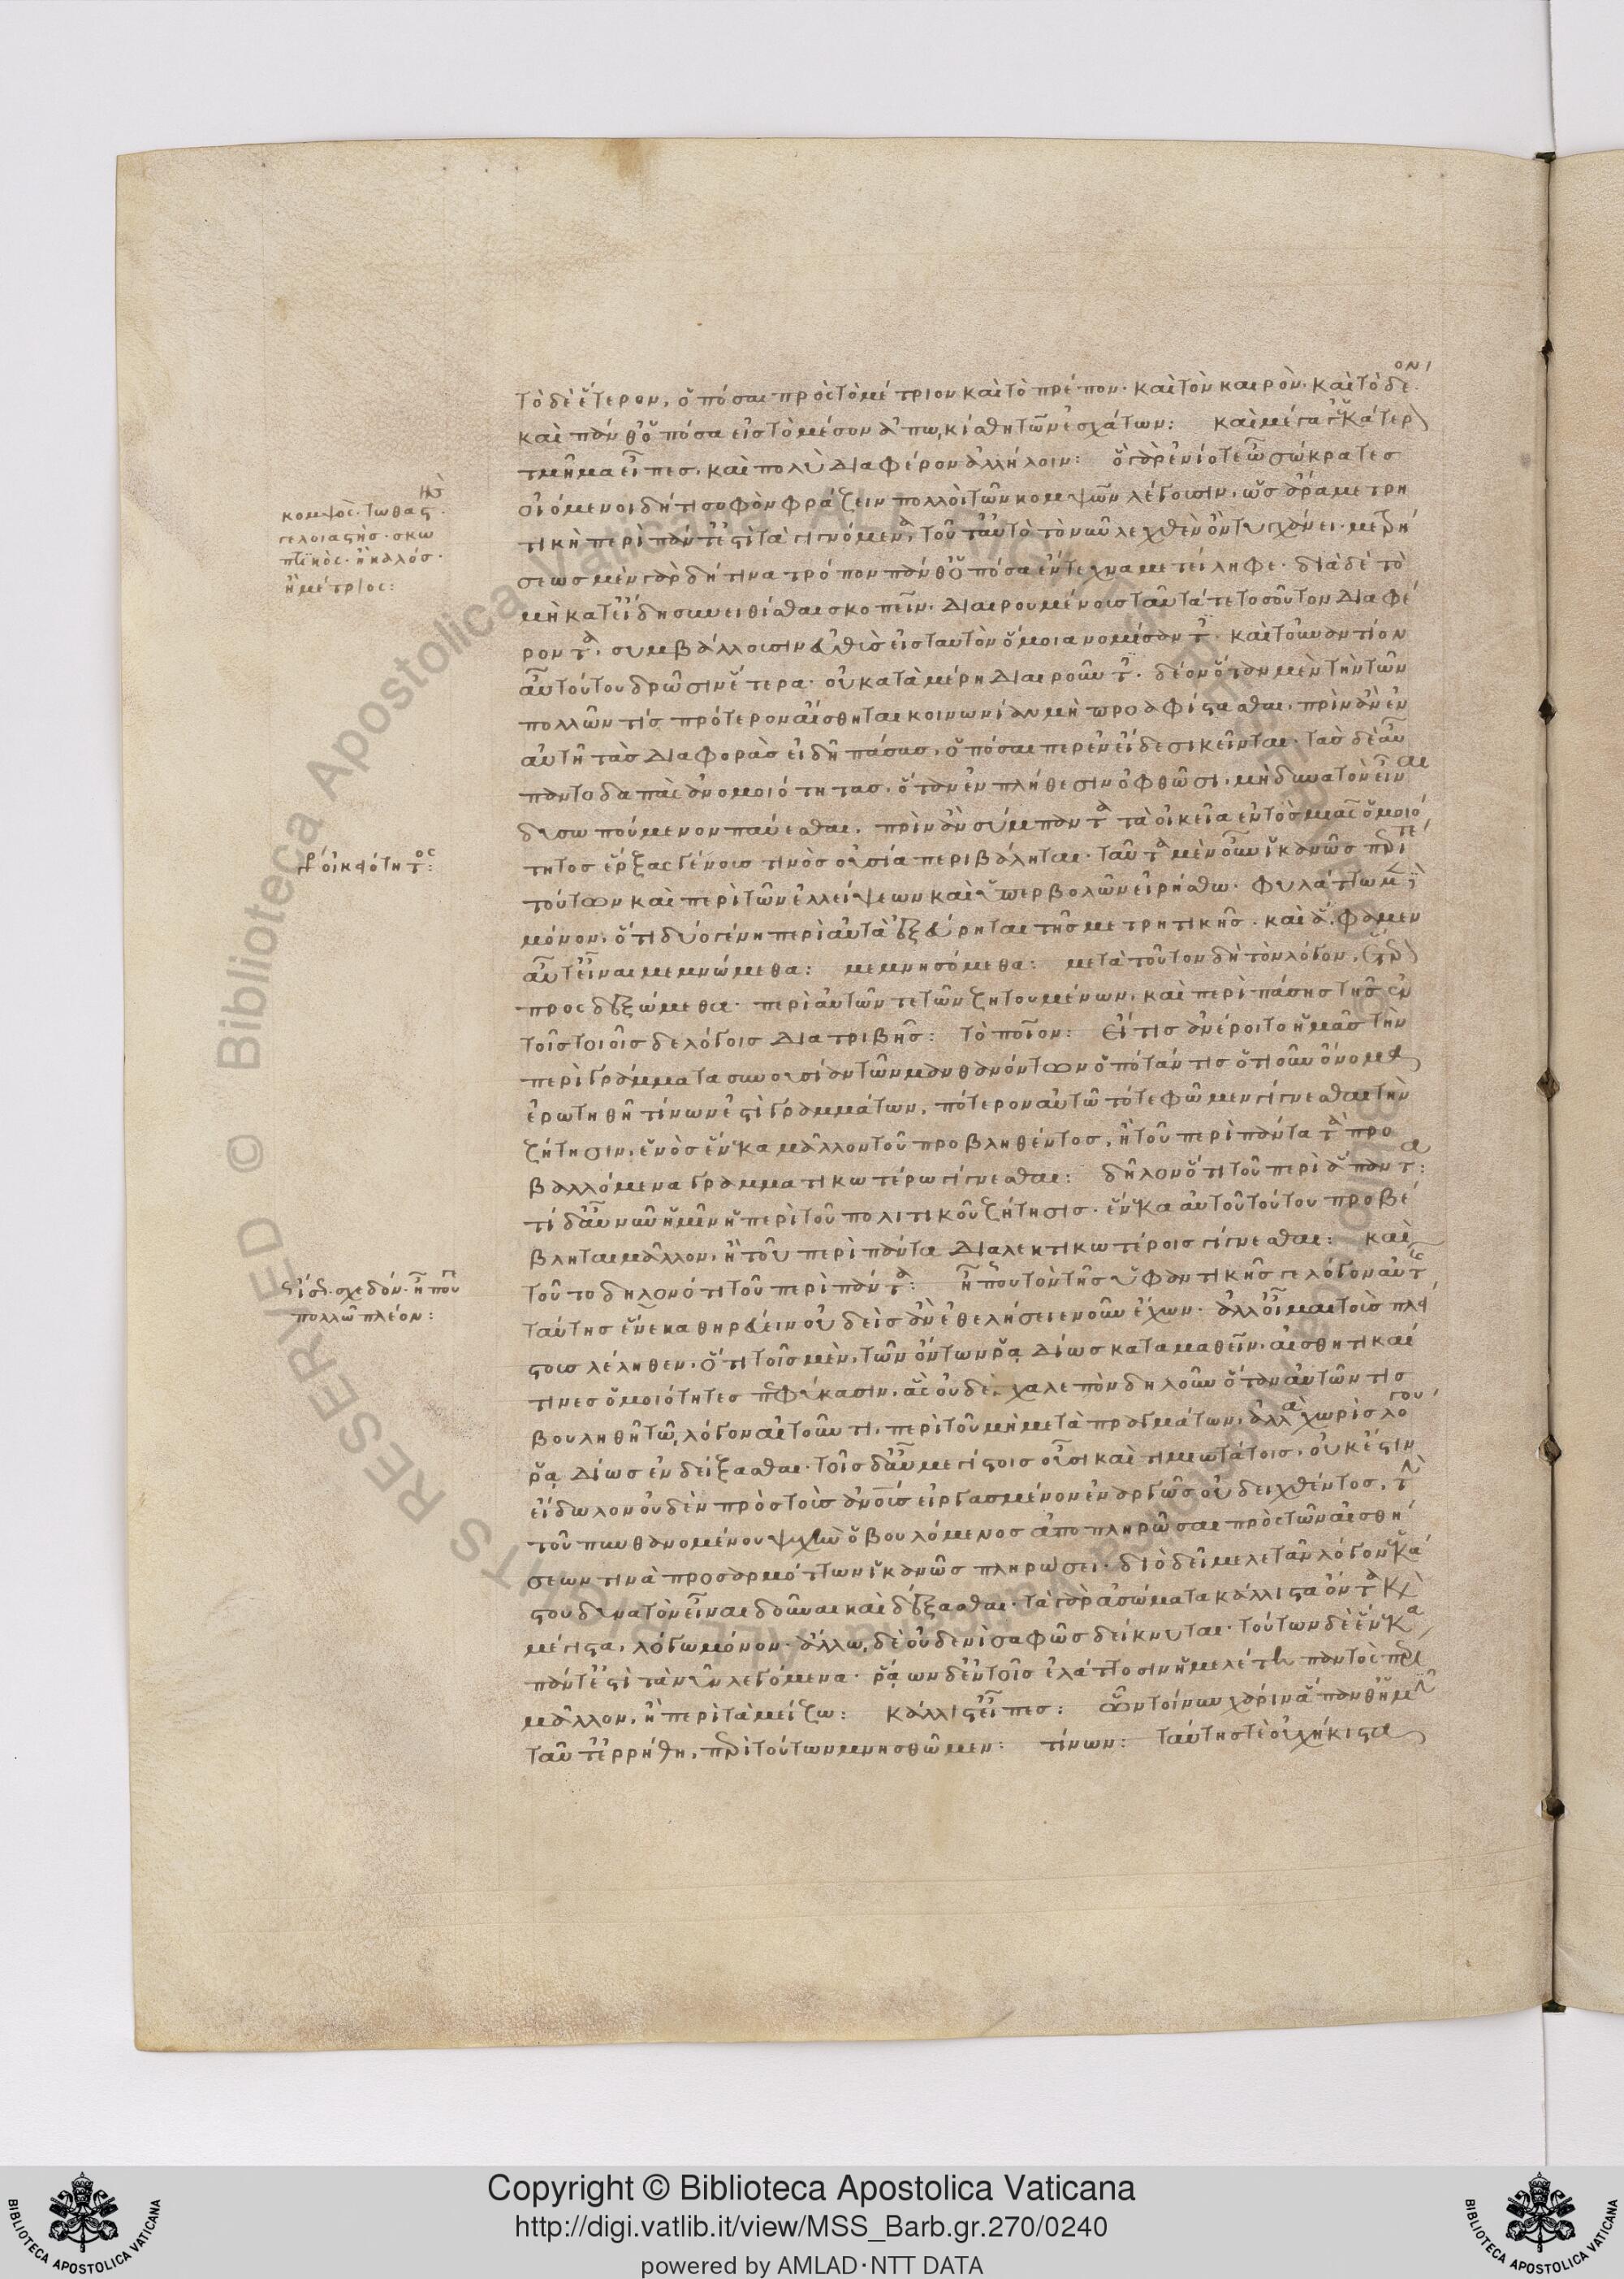 τὸ δὲ ἕτερον, ὁπόσαι πρὸς τὸ μέτριον καὶ τὸ πρέπον· καὶ τὸν καιρὸν· καὶ τὸ δέον
καὶ πάνθ᾽ ὁπόσα εἰς τὸ μέσον ἀπωκίσθη τῶν ἐσχάτων: καὶ μέγα γ᾽ ἑκάτερον
τμῆμα εἶπες. καὶ πολὺ διαφέρον ἀλλήλοιν: ὃ γὰρ ἐνίοτε ὦ σώκρατες
οἰόμενοι δή τι σοφὸν φράζειν πολλοὶ τῶν κομψῶν λέγουσιν, ὡς ἄρα μετρη
τικὴ περὶ πάντ᾽ ἐστὶ τὰ γιγνόμενα, τοῦτ᾽ αὐτὸ τὸ νῦν λεχθὲν ὂν τυγχάνει· μετρή
σεως μὲν γὰρ δή τινα τρόπον πάνθ᾽ ὁπόσα ἔντεχνα μετείληφε· διὰ δὲ τὸ
μὴ κατ᾽ εἴδη συνειθίσθαι σκοπεῖν· διαιρουμένους ταῦτά τε τοσοῦτον διαφέ
ροντα, συμβάλλουσιν εὐθὺς εἰς ταυτὸν ὅμοια νομίσαντες· καὶ τοὐναντίον
αὖ τούτου δρῶσιν ἕτερα· οὐ κατὰ μέρη διαιροῦντες· δέον ὅταν μὲν τὴν τῶν
πολλῶν τις πρότερον αἴσθηται κοινωνίαν μὴ προαφίστασθαι, πρὶν ἂν ἐν
αὐτῇ τὰς διαφορὰς εἰδῇ πάσας, ὁπόσαι περ ἐν εἴδεσι κεῖνται· τὰς δὲ αὖ
παντοδαπὰς ἀνομοιότητας, ὅταν ἐν πλήθεσιν ὀφθῶσι, μὴ δυνατὸν εἶναι
δυσωπούμενον παύεσθαι, πρὶν ἂν σύμπαντα τὰ οἰκεῖα ἐντὸς μιᾶς ὁμοιό
τητος ἔρξας γένους τινὸς οὐσίᾳ περιβάληται· ταῦτα μὲν οὖν ἱκανῶς περί τε
τούτων καὶ περὶ τῶν ἐλλείψεων καὶ ὑπερβολῶν εἰρήσθω· φυλάττωμεν δὲ
μόνον, ὅτι δύο γένη περὶ αὐτὰ ἐξεύρηται τῆς μετρητικῆς· καὶ ἅ φαμεν
αὔτ᾽ εἶναι μεμνώμεθα: μεμνησόμεθα: μετὰ τοῦτον δὴ τὸν λόγον, ἕτερον
προσδεξώμεθα· περὶ αὐτῶν τε τῶν ζητουμένων, καὶ περὶ πάσης τῆς ἐν
τοῖς τοιοῖσδε λόγοις διατριβῆς: τὸ ποῖον: εἴ τις ἀνέροιτο ἡμᾶς τὴν
περὶ γράμματα συνουσίαν τῶν μανθανόντων ὁπόταν τις ὁτιοῦν ὄνομα
ἐρωτηθῇ τίνων ἐστὶ γραμμάτων, πότερον αὐτῷ τότε φῶμεν γίγνεσθαι τὴν
ζήτησιν, ἑνὸς ἕνεκα μᾶλλον τοῦ προβληθέντος, ἢ τοῦ περὶ πάντα τὰ προ
βαλλόμενα γραμματικωτέρῳ γίγνεσθαι: δῆλον ὅτι τοῦ περὶ ἅπαντα:
τί δ᾽ αὖ νῦν ἡμῖν ἡ περὶ τοῦ πολιτικοῦ ζήτησις· ἕνεκα αὐτοῦ τούτου προβέ
βληται μᾶλλον, ἢ τοῦ περὶ πάντα διαλεκτικωτέροις γίγνεσθαι: καὶ
τοῦτο δῆλον ὅτι τοῦ περὶ πάντα: ἦ που τὸν τῆς ὑφαντικῆς γε λόγον αὐτῆς
ταύτης ἕνεκα θηρεύειν οὐδεὶς ἂν ἐθελήσειε νοῦν ἔχων· ἀλλ᾽ οἶμαι τοὺς πλεί
στους λέληθεν, ὅτι τοῖς μὲν, τῶν ὄντων ῥᾳδίως καταμαθεῖν, αἰσθητικαί
τινες ὁμοιότητες πεφύκασιν, ἃς οὐδὲν χαλεπὸν δηλοῦν ὅταν αὐτῶν τις
βουληθῇ τῷ λόγον αἰτοῦντι, περί του μὴ μετὰ πραγμάτων, ἀλλὰ χωρὶς λόγου
ῥᾳδίως ἐνδείξασθαι· τοῖς δ᾽ αὖ μεγίστοις οὖσι καὶ τιμιωτάτοις, οὐκ ἔστιν
εἴδωλον οὐδὲν πρὸς τοὺς ἀνθρώπους εἰργασμένον ἐναργῶς οὗ δειχθέντος, τὴν
τοῦ πυνθανομένου ψυχὴν ὁ βουλόμενος ἀποπληρῶσαι πρὸς τῶν αἰσθή
σεών τινα προσαρμόττων ἱκανῶς πληρώσει· διὸ δεῖ μελετᾶν λόγον ἑκά
στου δυνατὸν εἶναι δοῦναι καὶ δέξασθαι· τὰ γὰρ ἀσώματα κάλλιστα ὄντα καὶ
μέγιστα, λόγῳ μόνον· ἄλλῳ δὲ οὐδενὶ σαφῶς δείκνυται· τούτων δὲ ἕνεκα
πάντ᾽ ἐστὶ τὰ νῦν λεγόμενα· ῥᾴων δ᾽ ἐν τοῖς ἐλάττοσιν ἡ μελέτη παντὸς πέρι
μᾶλλον, ἢ περὶ τὰ μείζω: κάλλιστ᾽ εἶπες: ὧν τοίνυν χάριν ἅπανθ᾽ ἡμῖν
ταῦτ᾽ ἐρρήθη, περὶ τούτων μνησθῶμεν: τίνων: ταύτης τε οὐχ ἥκιστα
κομψὸς· τωθαστὴς
γελοιαστὴς· σκω
πτικὸς· ἢ καλός·
ἢ μέτριος:
οἰκειότητος:
σχεδόν· ἦ που
πολλῷ πλέον:
Copyright © Biblioteca Apostolica Vaticana
http://digi.vatlib.it/view/MSS_Barb.gr.270/0240
powered by AMLAD·NTT DATA
BIBLIOTECA APOSTOLICA VATICANA
BIBLIOTECA APOSTOLICA VATICANA